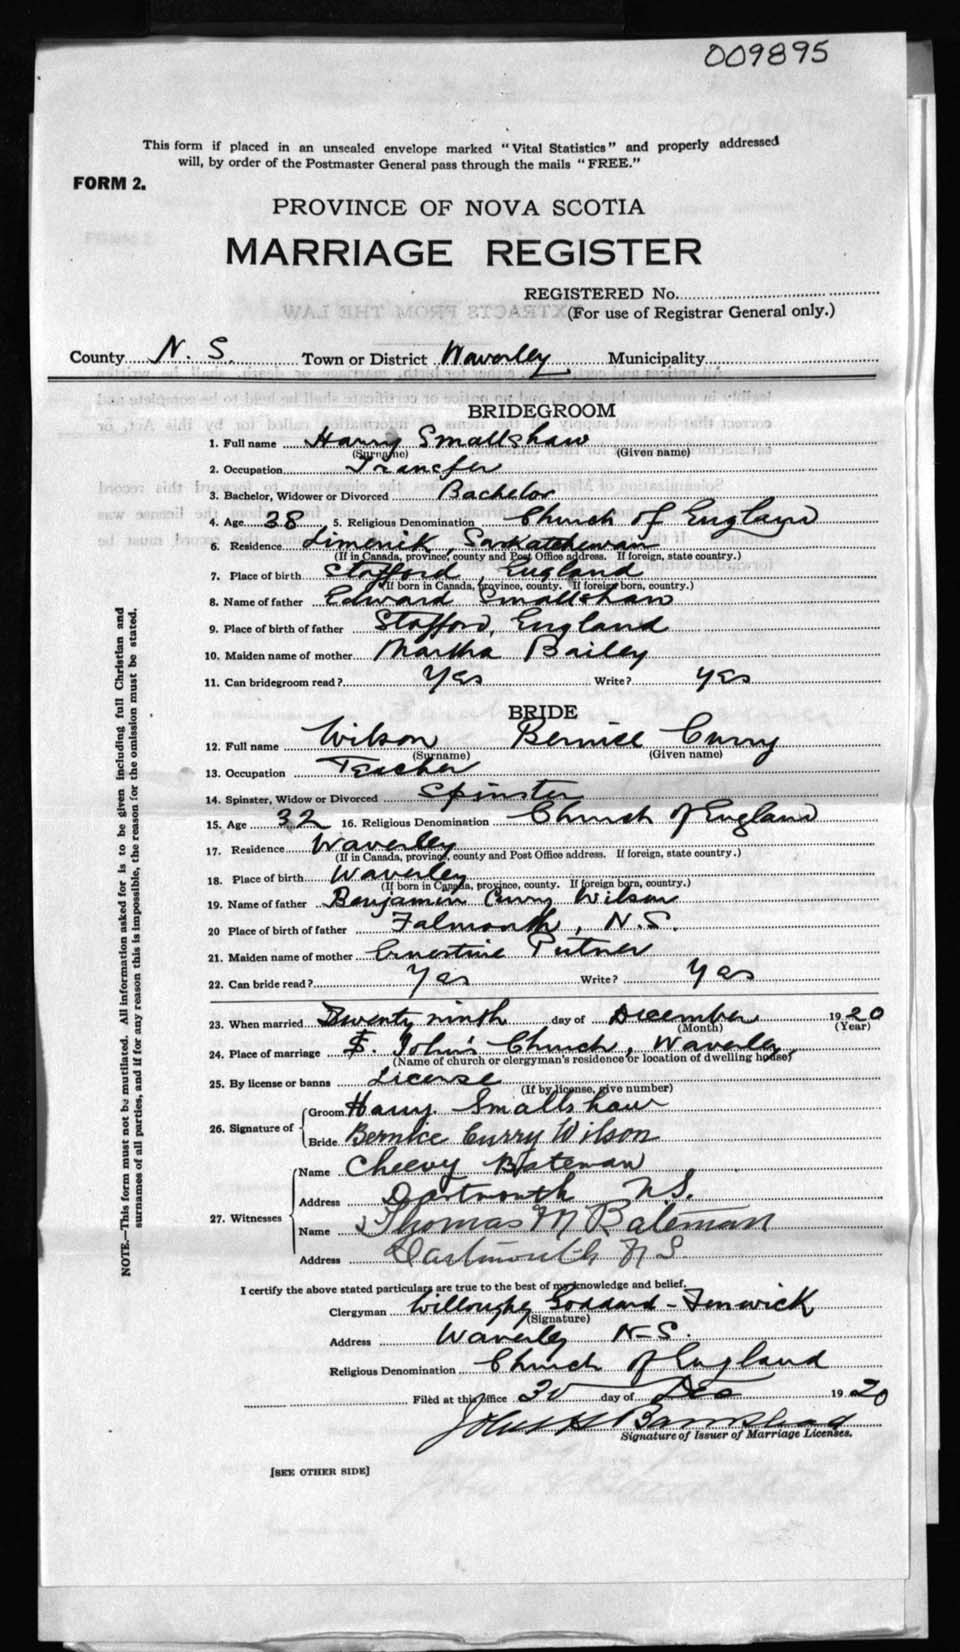 009895
This form if placed in an unsealed envelope marked "Vital Statistics" and properly addressed
will, by order of the Postmaster General pass through the mails "FREE."
FORM 2.
PROVINCE OF NOVA SCOTIA
MARRIAGE REGISTER
REGISTERED No.
(For use of Registrar General only.)
County N. S. Town or District Waverley Municipality
BRIDEGROOM
1. Full name Harry Smallshaw
(Surname) (Given name)
2. Occupation Transfer
3. Bachelor, Widower or Divorced Bachelor
4. Age 38 5. Religious Denomination Church of England
6. Residence Limerick, Saskatchewan
(If in Canada, province, county and Post Office address. If foreign, state country.)
7. Place of birth Stafford, England
(If born in Canada, province, county. If foreign born, country.)
8. Name of father Edward Smallshaw
9. Place of birth of father Stafford, England
10. Maiden name of mother Martha Bailey
11. Can bridegroom read? Yes Write? yes
BRIDE
12. Full name Wilson Bernice Curry
(Surname) (Given name)
13. Occupation Teacher
14. Spinster, Widow or Divorced Spinster
15. Age 32 16. Religious Denomination Church of England
17. Residence Waverley
(If in Canada, province, county and Post Office address. If foreign, state country.)
18. Place of birth Waverley
(If born in Canada, province, county. If foreign born, country.)
19. Name of father Benjamin Curry Wilson
20 Place of birth of father Falmouth, N.S.
21. Maiden name of mother Ernestine Putner
22. Can bride read? Yes Write? Yes
23. When married Twenty ninth day of December 1920
(Month) (Year)
24. Place of marriage St. John's Church, Waverley
(Name of church or clergyman's residence or location of dwelling house)
25. By license or banns License
(If by license, give number)
26. Signature of Groom Harry Smallshaw
Bride Bernice Curry Wilson
27. Witnesses Name Cheevy Bateman
Address Dartmouth N.S.
Name Thomas M Bateman
Address Dartmouth N S
I certify the above stated particulars are true to the best of my knowledge and belief.
Clergyman Willoughby Goddard-Fenwick
(Signature)
Address Waverley N-S.
Religious Denomination Church of England
Filed at this office 30 day of Dec 1920
Signature of Issuer of Marriage Licenses.
[SEE OTHER SIDE]
NOTE.—This form must not be mutilated. All information asked for is to be given including full Christian and
surnames of all parties, and if for any reason this is impossible, the reason for the omission must be stated.